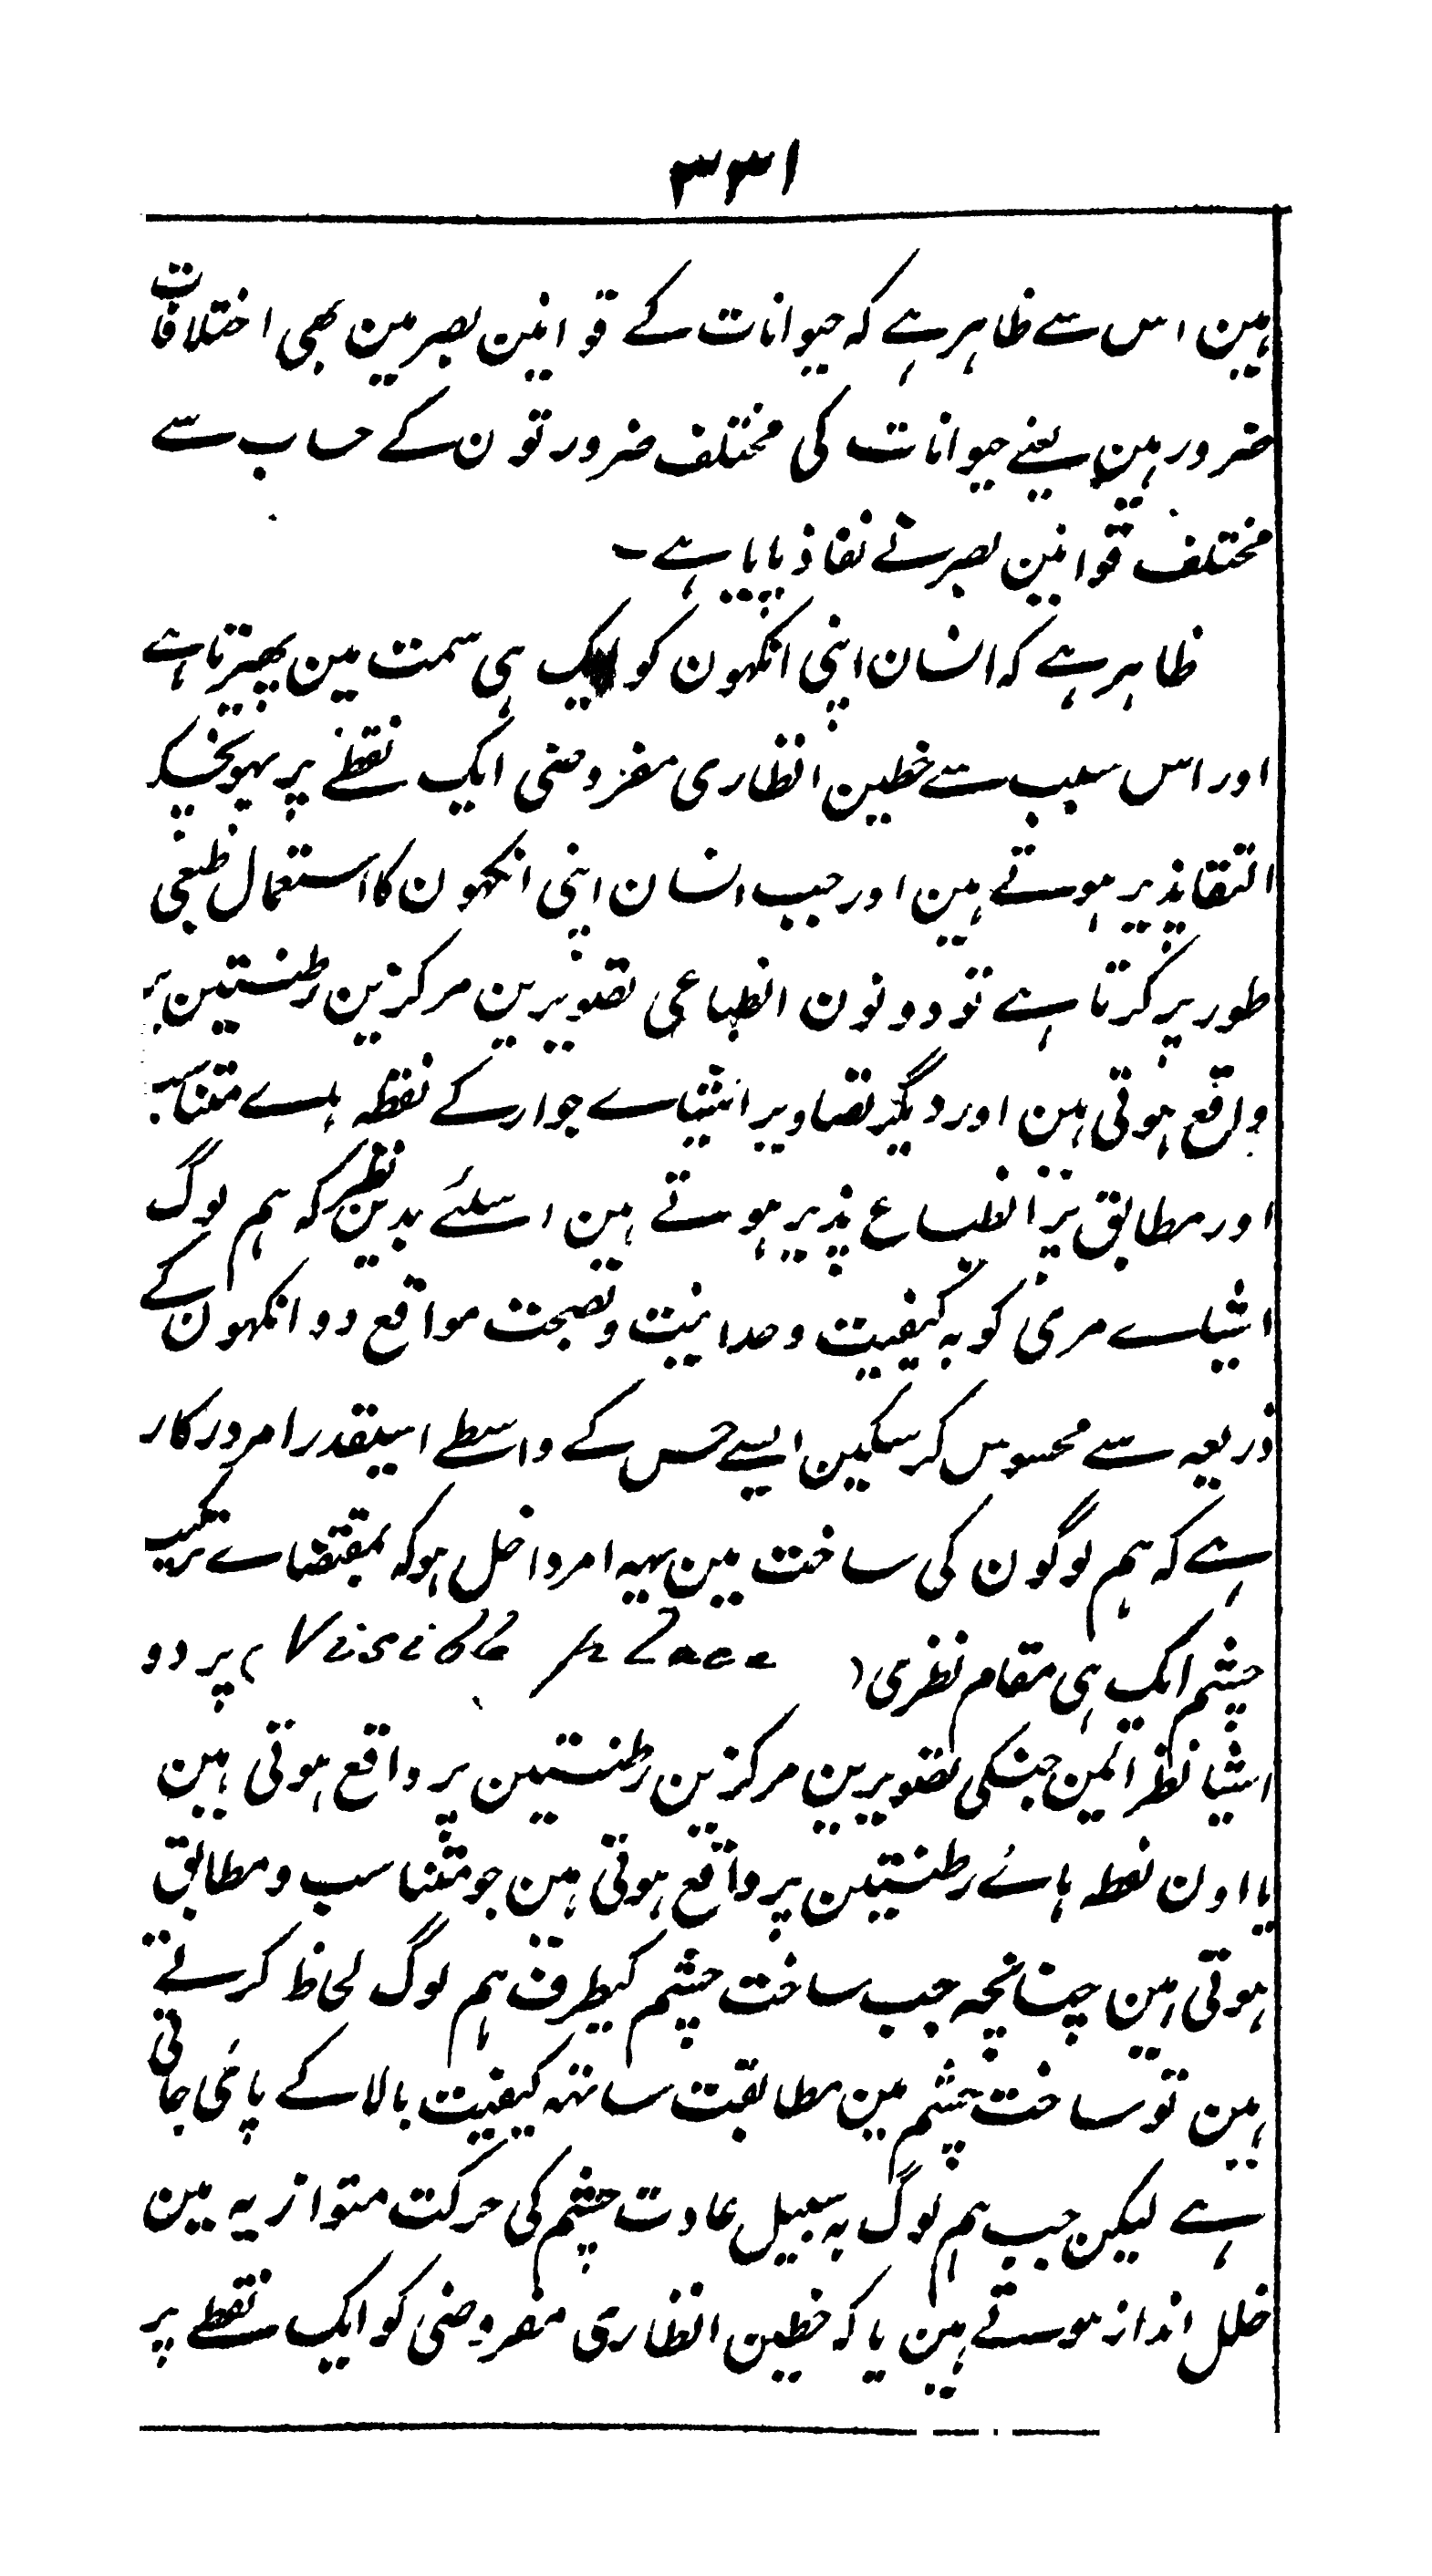 ۳۳۱
ہین اس سے ظاہر ہے کہ حیوانات کے قوانین بصر مین بھی اختلافات
ضرور ہین یعنے حیوانات کی مختلف ضرورتون کے حساب سے
مختلف قوانین بصر نے نفاذ پایا ہے۔
ظاہر ہے کہ انسان اپنی انکھون کو ایک ہی سمت مین پھیرتا ہے
اور اس سبب سے خطین انظاری مفروضی ایک نقطے پر پہونچکر
التقا پذیر ہوتے ہین اور جب انسان اپنی انکھون کا استعمال طبعی
طور پر کرتا ہے تو دونون انطباعی تصویرین مرکزین رطنتین پر
واقع ہوتی ہین اور دیگر تصاویر اشیاے جوار کے نقطہ ہاے متناسب
اور مطابق پر انطباع پذیر ہوتے ہین اسلئے بدین نظر کہ ہم لوگ
اشیاے مرئی کو بہ کیفیت وحدانیت و تصبحت مواقع دو انکھون کے
ذریعہ سے محسوس کر سکین ایسے حس کے واسطے اسیقدر امر درکار
ہے کہ ہم لوگون کی ساخت مین یہہ امر داخل ہو کہ بمقتضاے ترکیب
چشم ایک ہی مقام نظری (Visible place) پر دو
اشیا نظر ائین جنکی تصویرین مرکزین رطنتین پر واقع ہوتی ہین
یا اون نقطہ ہائے رطنتین پر واقع ہوتی ہین جو متناسب و مطابق
ہوتی ہین چنانچہ جب ساخت چشم کیطرف ہم لوگ لحاظ کرتے
ہین تو ساخت چشم مین مطابقت ساتھ کیفیت بالا کے پائی جاتی
ہے لیکن جب ہم لوگ بہ سبیل عادت چشم کی حرکت متوازیہ مین
خلل انداز ہوتے ہین یا کہ خطین انظاری مفروضی کو ایک نقطے پر